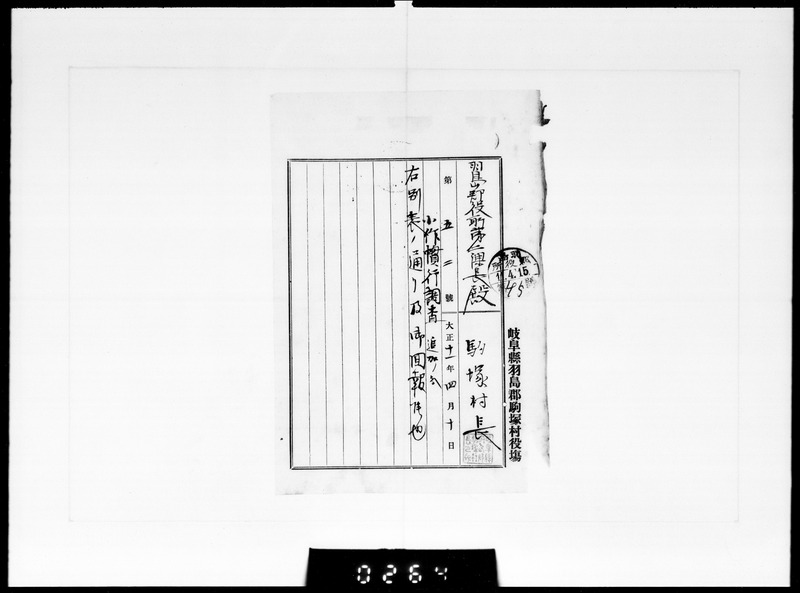 羽島郡役所第二課長殿
駒塚村長
第五二號
大正十一年四月十日
小作慣行調査追加ノ分
右別表ノ通リ及御回報候也
岐阜縣羽島郡駒塚村役塲
11.4.15
0264